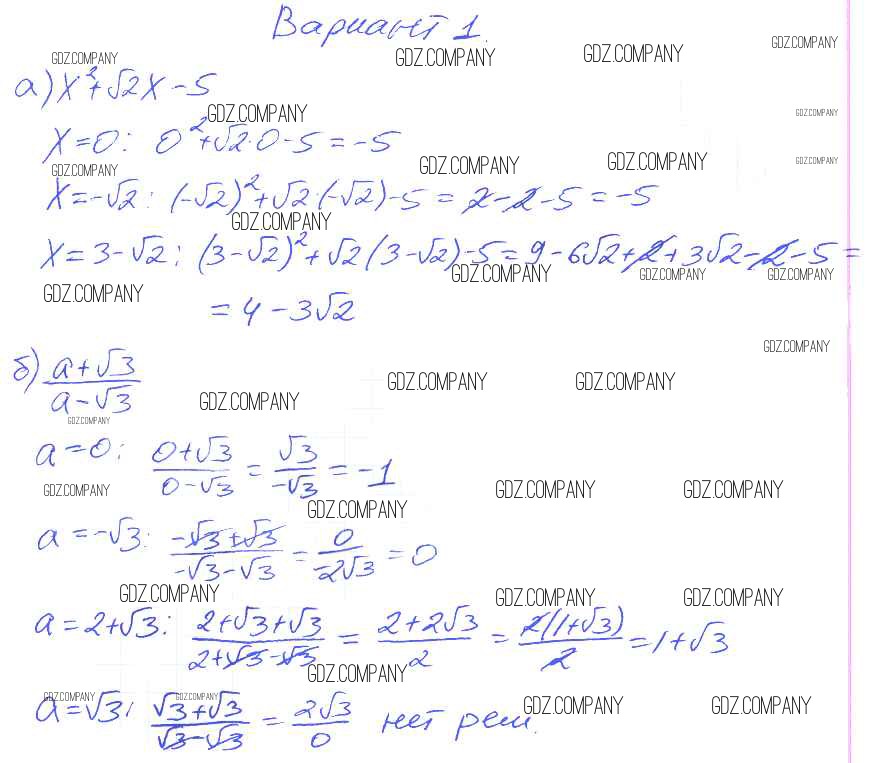 Вариант 1.
GDZ.COMPANY GDZ.COMPANY GDZ.COMPANY GDZ.COMPANY
а) x²+√2x-5
GDZ.COMPANY GDZ.COMPANY
x=0: 0²+√2·0-5=-5
GDZ.COMPANY GDZ.COMPANY GDZ.COMPANY GDZ.COMPANY
x=-√2: (-√2)²+√2·(-√2)-5=2-2-5=-5
GDZ.COMPANY
x=3-√2: (3-√2)²+√2(3-√2)-5=9-6√2+2+3√2-2-5=
GDZ.COMPANY GDZ.COMPANY GDZ.COMPANY
GDZ.COMPANY
=4-3√2
GDZ.COMPANY
б) (a+√3)/(a-√3)
GDZ.COMPANY GDZ.COMPANY GDZ.COMPANY
GDZ.COMPANY
a=0: (0+√3)/(0-√3)=√3/(-√3)=-1
GDZ.COMPANY GDZ.COMPANY GDZ.COMPANY
GDZ.COMPANY
a=-√3: (-√3+√3)/(-√3-√3)=0/(-2√3)=0
GDZ.COMPANY GDZ.COMPANY GDZ.COMPANY
a=2+√3: (2+√3+√3)/(2+√3-√3)=(2+2√3)/2=2(1+√3)/2=1+√3
GDZ.COMPANY
GDZ.COMPANY GDZ.COMPANY GDZ.COMPANY GDZ.COMPANY
a=√3: (√3+√3)/(√3-√3)=2√3/0 нет реш.